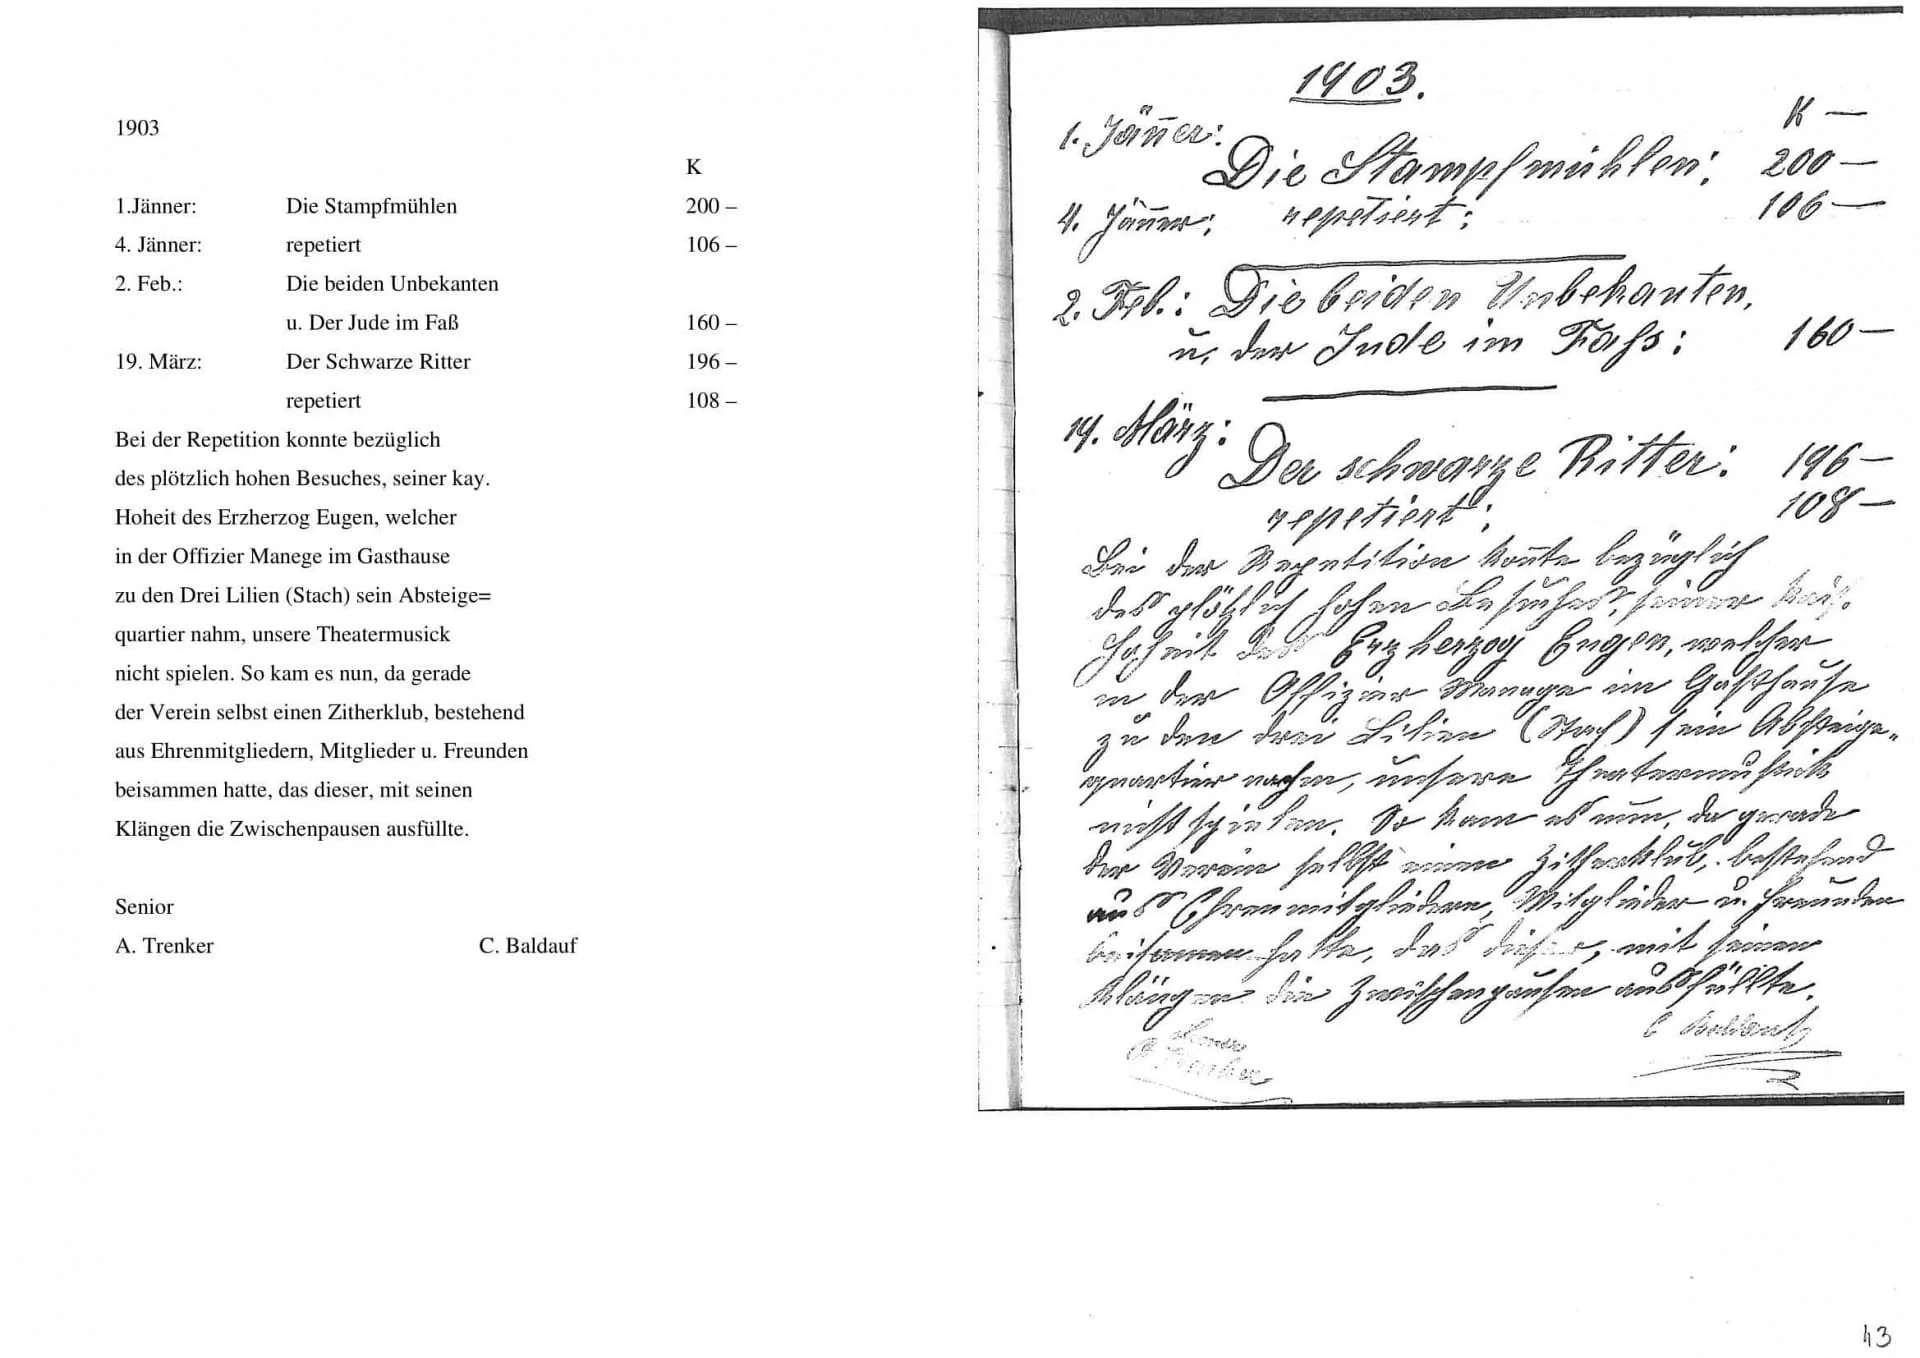 1903
K
1.Jänner: Die Stampfmühlen 200 –
4. Jänner: repetiert 106 –
2. Feb.: Die beiden Unbekanten
u. Der Jude im Faß 160 –
19. März: Der Schwarze Ritter 196 –
repetiert 108 –
Bei der Repetition konnte bezüglich
des plötzlich hohen Besuches, seiner kay.
Hoheit des Erzherzog Eugen, welcher
in der Offizier Manege im Gasthause
zu den Drei Lilien (Stach) sein Absteige=
quartier nahm, unsere Theatermusick
nicht spielen. So kam es nun, da gerade
der Verein selbst einen Zitherklub, bestehend
aus Ehrenmitgliedern, Mitglieder u. Freunden
beisammen hatte, das dieser, mit seinen
Klängen die Zwischenpausen ausfüllte.
Senior
A. Trenker C. Baldauf
1903.
K —
1. Jän̄er:
Die Stampfmühlen: 200 —
4. Jän̄er: repetiert: 106 —
2. Feb.: Die beiden Unbekanten,
u. der Jude im Fahs: 160 —
19. März:
Der schwarze Ritter: 196 —
repetiert: 108 —
Bei der Repetition kon̄te bezüglich
des plötzlich hohen Besuches, seiner kais.
Hoheit des Erzherzog Eugen, welcher
in der Offizier Manege im Gasthause
zu den drei Lilien (Stach) sein Absteige„
quartier nahm, unsere Theatermusick
nicht spielen. So kam es nun, da gerade
der Verein selbst einen Zitherklub, bestehend
aus Ehrenmitgliedern, Mitglieder u. Freunden
beisamen hatte, das dieser, mit seinen
Klängen die Zwischenpausen ausfüllte.
Senior
A Trenker
C Baldauf
43